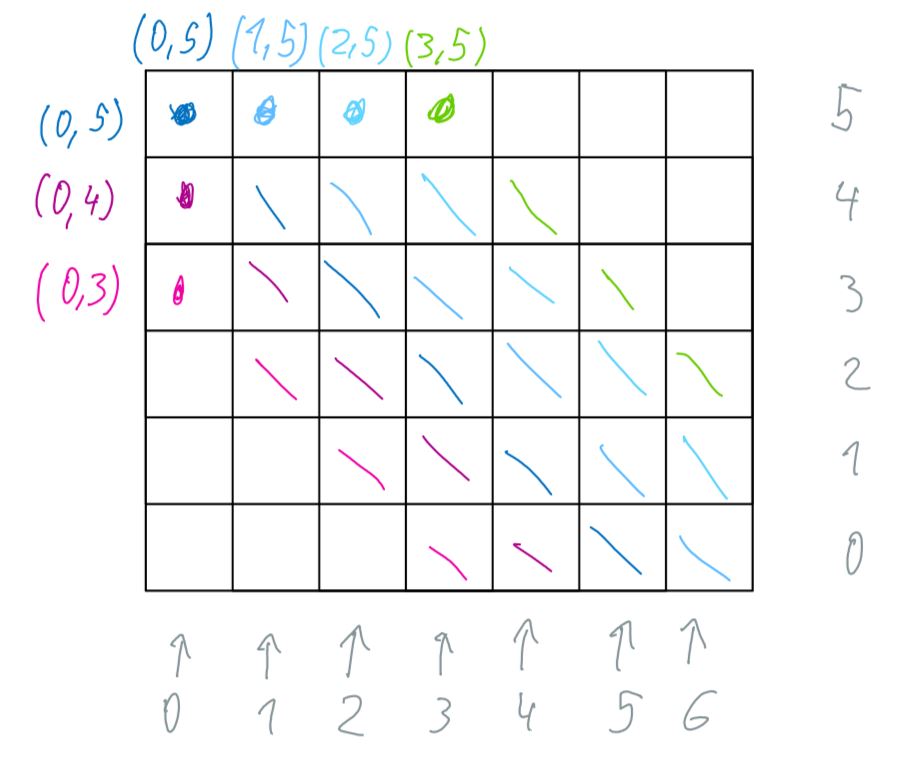 (0,5) (1,5) (2,5) (3,5)
(0,5) 5
(0,4) 4
(0,3) 3
2
1
0
0 1 2 3 4 5 6